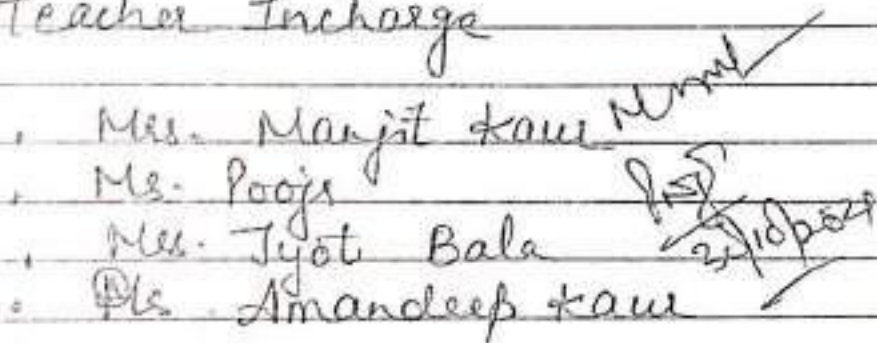 Teacher Incharge
Mrs. Manjit Kaur
Ms. Pooja
Mrs. Jyoti Bala
Ms. Amandeep Kaur